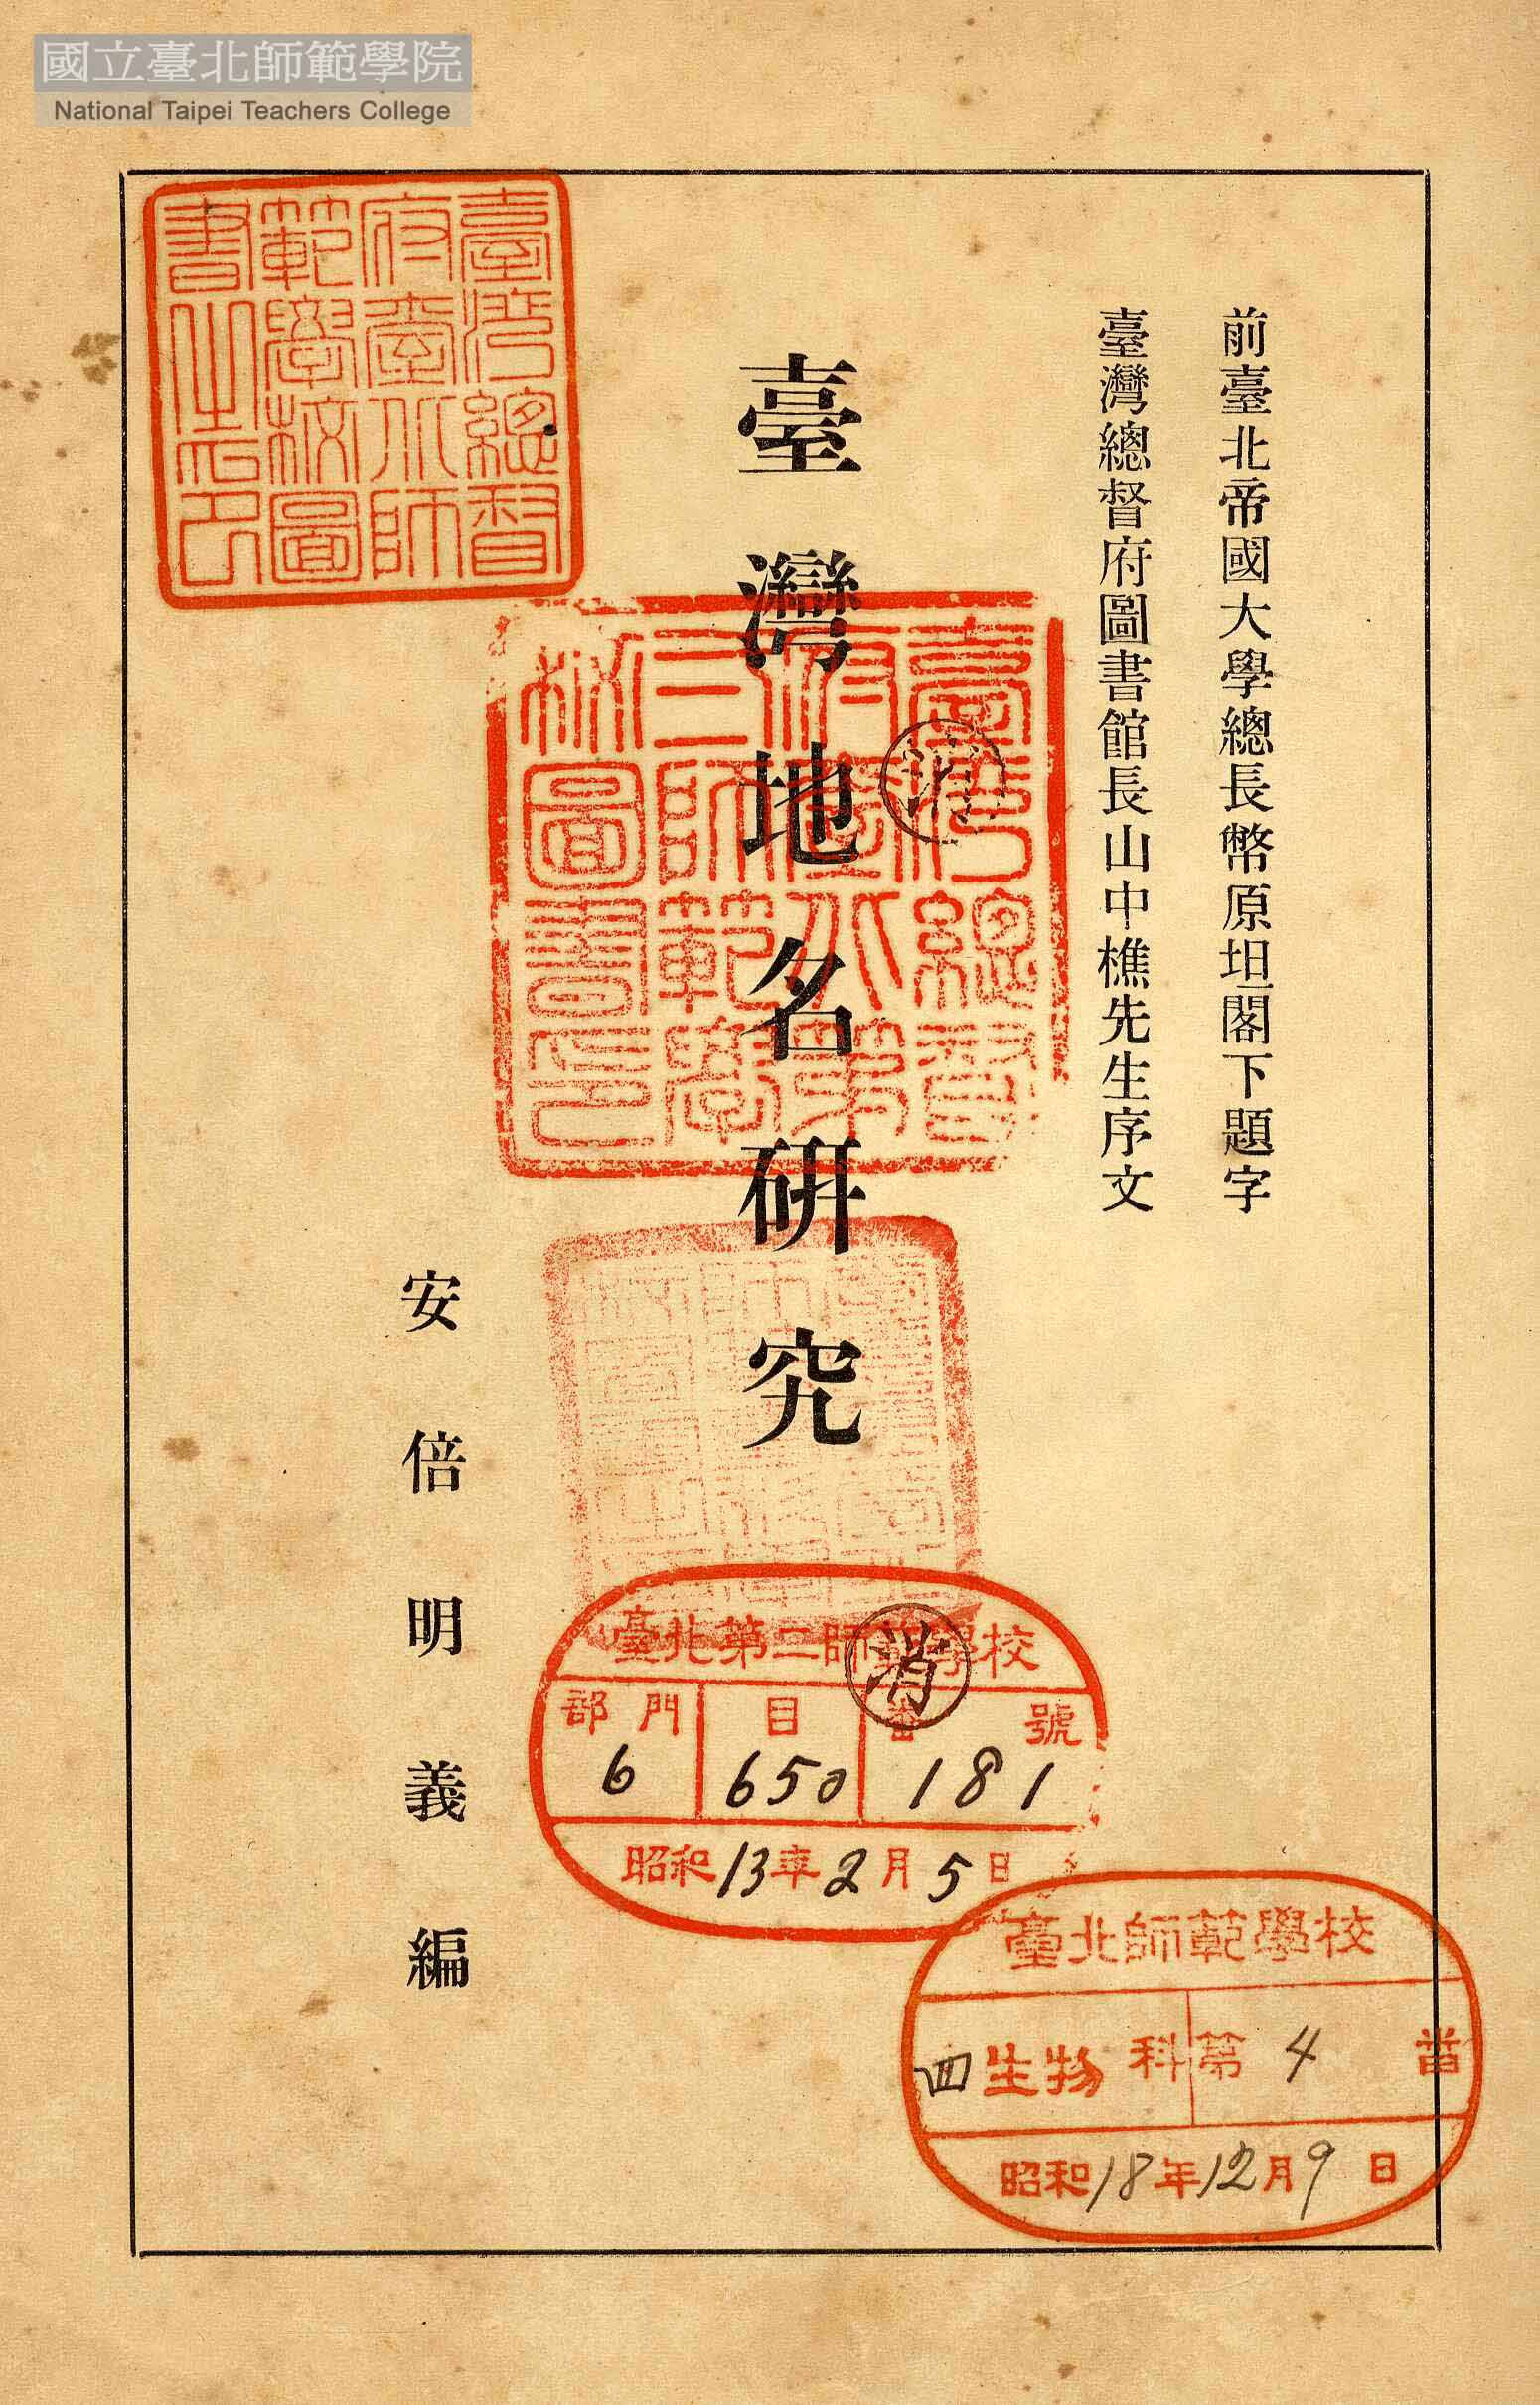 國立臺北師範學院
National Taipei Teachers College
前臺北帝國大學總長幣原坦閣下題字
臺灣總督府圖書館長山中樵先生序文
臺灣地名研究
安倍明義編
臺灣總督
府臺北師
範學校圖
書之印
臺灣總督
府臺北第
二師範學
校圖書印
消
臺北第二師範學校
部門 目 番號
6 650 181
消
昭和13年2月5日
臺北師範學校
四生物科第4番
昭和18年12月9日